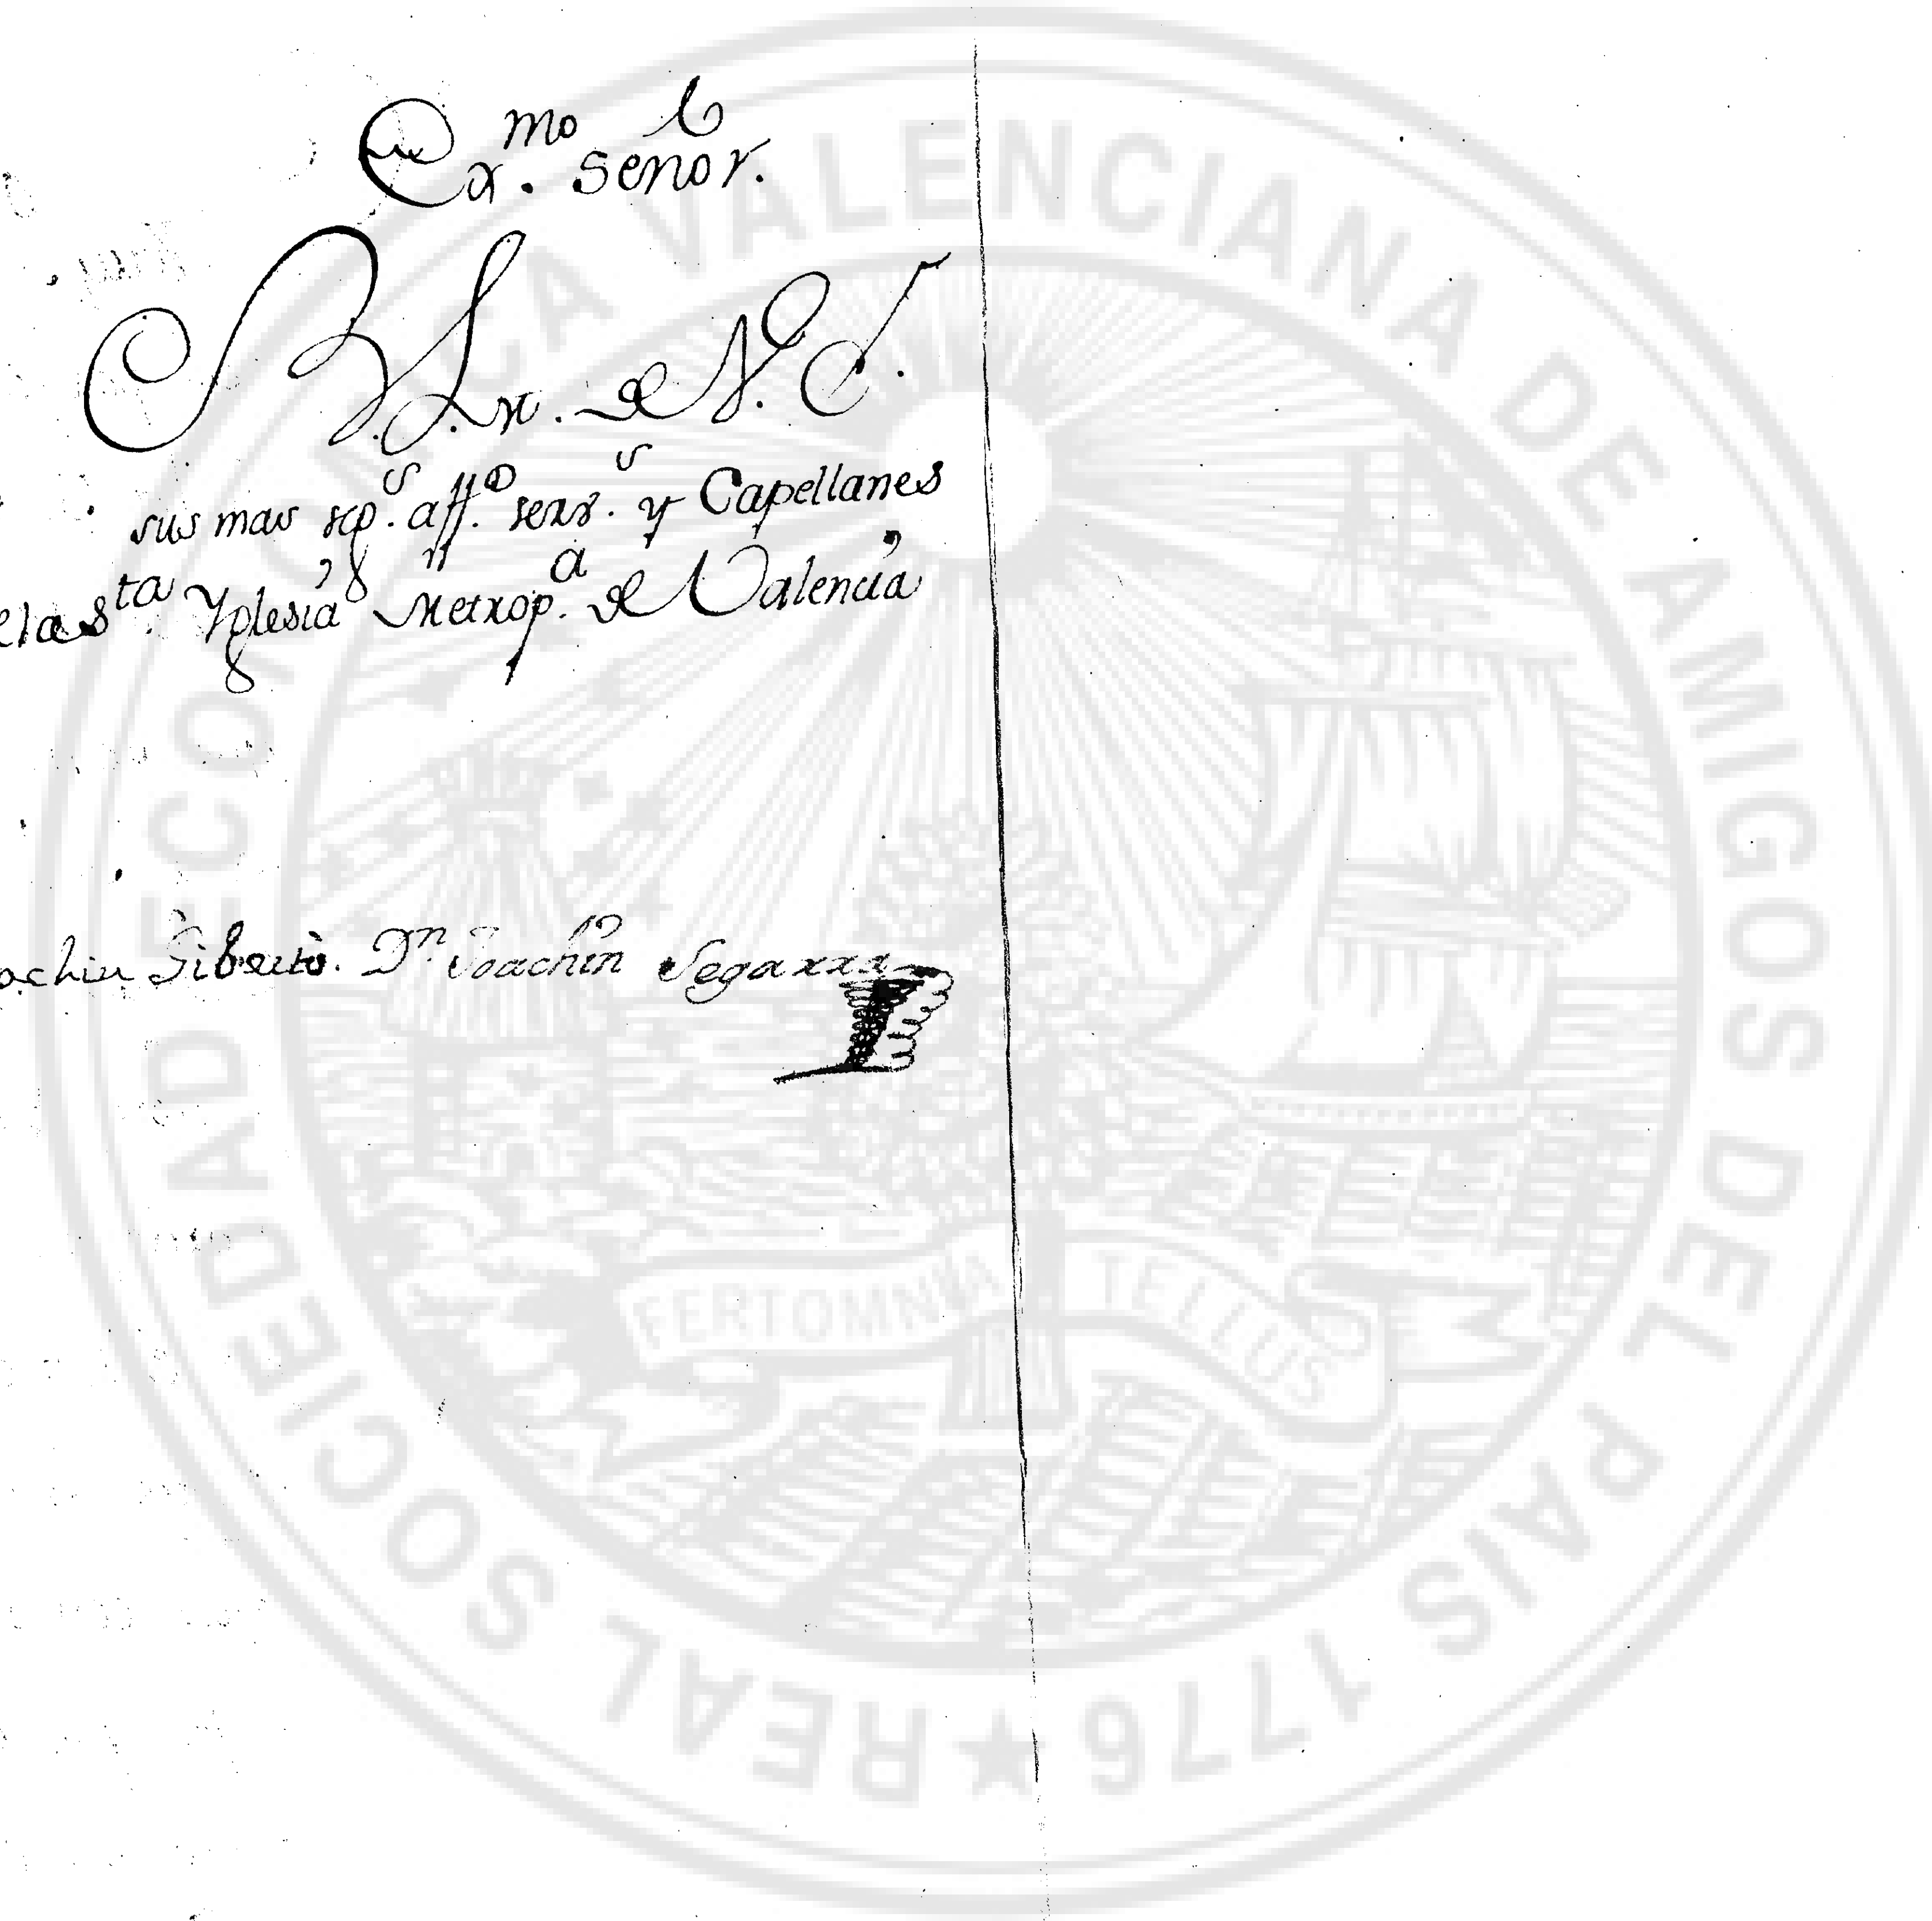 Ex.mo Señor.
B. L. M. de V. E.
sus mas rp.s aff.os serv.s y Capellanes
elas.ta Yglesia Metrop.a de Valencia
oachin Giberto. Dn Joachin Segarra
REAL SOCIEDAD ECONOMICA VALENCIANA DE AMIGOS DEL PAIS 1776
FERT OMNIA TELLUS